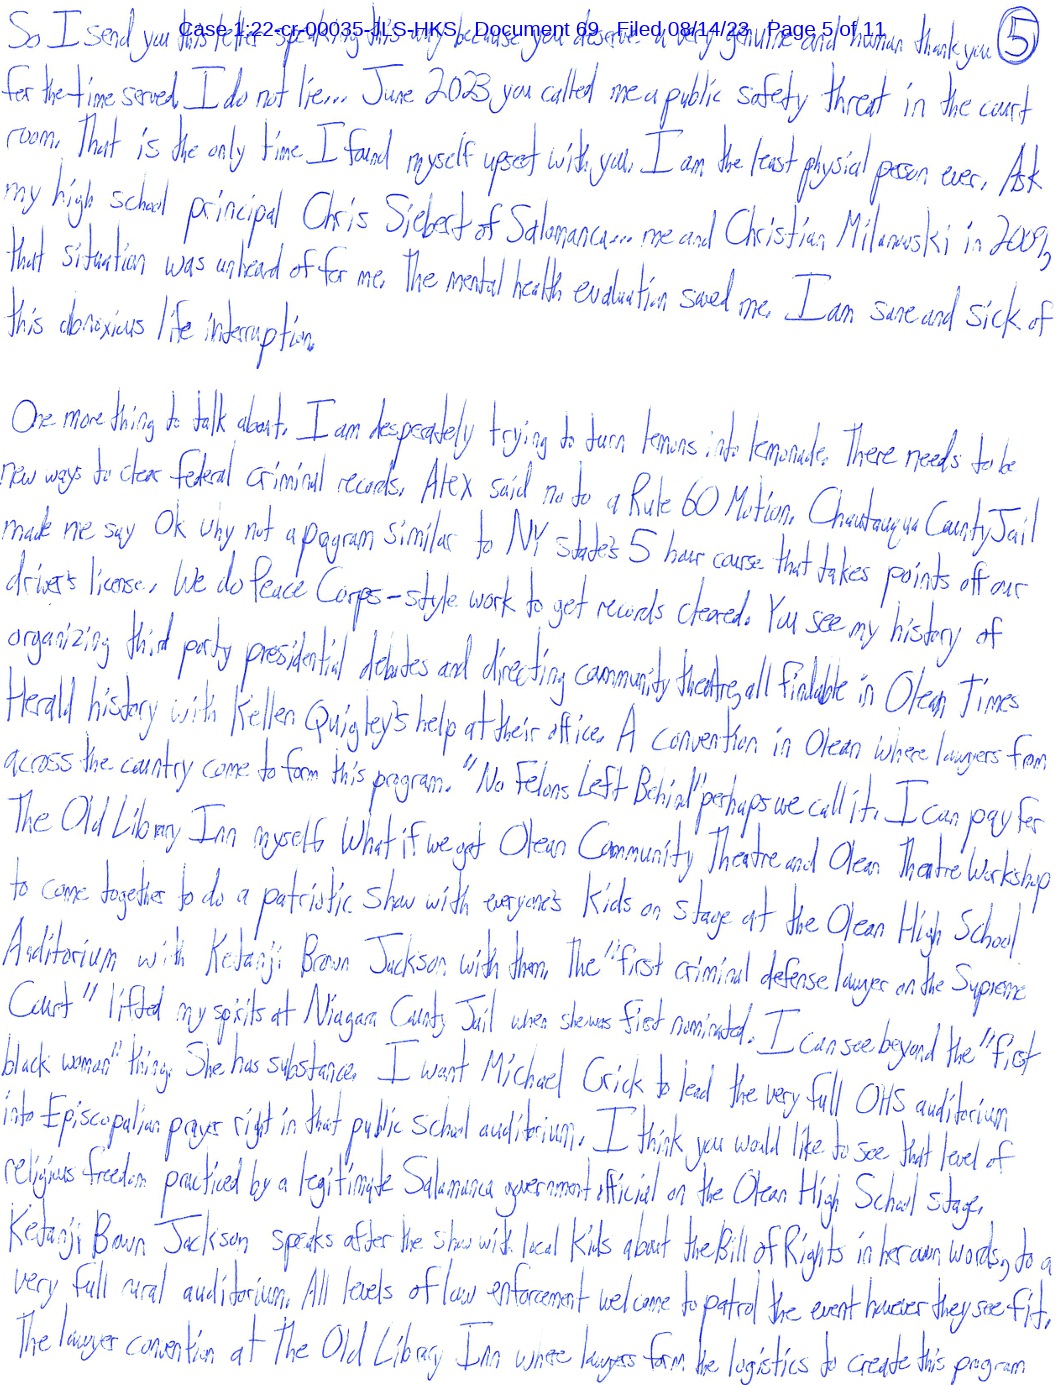 Case 1:22-cr-00035-JLS-HKS   Document 69   Filed 08/14/23   Page 5 of 11
So I send you this letter speaking this way because you deserve a very genuine and human thank you 5
for the time served. I do not lie... June 2023, you called me a public safety threat in the court
room. That is the only time I found myself upset with you. I am the least physical person ever. Ask
my high school principal Chris Siebert of Salamanca... me and Christian Milanowski in 2009,
that situation was unheard of for me. The mental health evaluation saved me. I am sane and sick of
this obnoxious life interruption.
One more thing to talk about. I am desperately trying to turn lemons into lemonade. There needs to be
new ways to clear federal criminal records. Alex said no to a Rule 60 Motion. Chautauqua County Jail
made me say Ok why not a program similar to NY state's 5 hour course that takes points off our
driver's license. We do Peace Corps-style work to get records cleared. You see my history of
organizing third party presidential debates and directing community theatre, all findable in Olean Times
Herald history with Kellen Quigley's help at their office. A convention in Olean where lawyers from
across the country come to form this program. "No Felons Left Behind" perhaps we call it. I can pay for
The Old Library Inn myself. What if we got Olean Community Theatre and Olean Theatre Workshop
to come together to do a patriotic show with everyone's kids on stage at the Olean High School
Auditorium with Ketanji Brown Jackson with them. The "first criminal defense lawyer on the Supreme
Court" lifted my spirits at Niagara County Jail when she was first nominated. I can see beyond the "first
black woman" thing. She has substance. I want Michael Crick to lead the very full OHS auditorium
into Episcopalian prayer right in that public school auditorium. I think you would like to see that level of
religious freedom practiced by a legitimate Salamanca government official on the Olean High School stage.
Ketanji Brown Jackson speaks after the show with local kids about the Bill of Rights in her own words, to a
very full rural auditorium. All levels of law enforcement welcome to patrol the event however they see fit.
The lawyer convention at The Old Library Inn where lawyers form the logistics to create this program